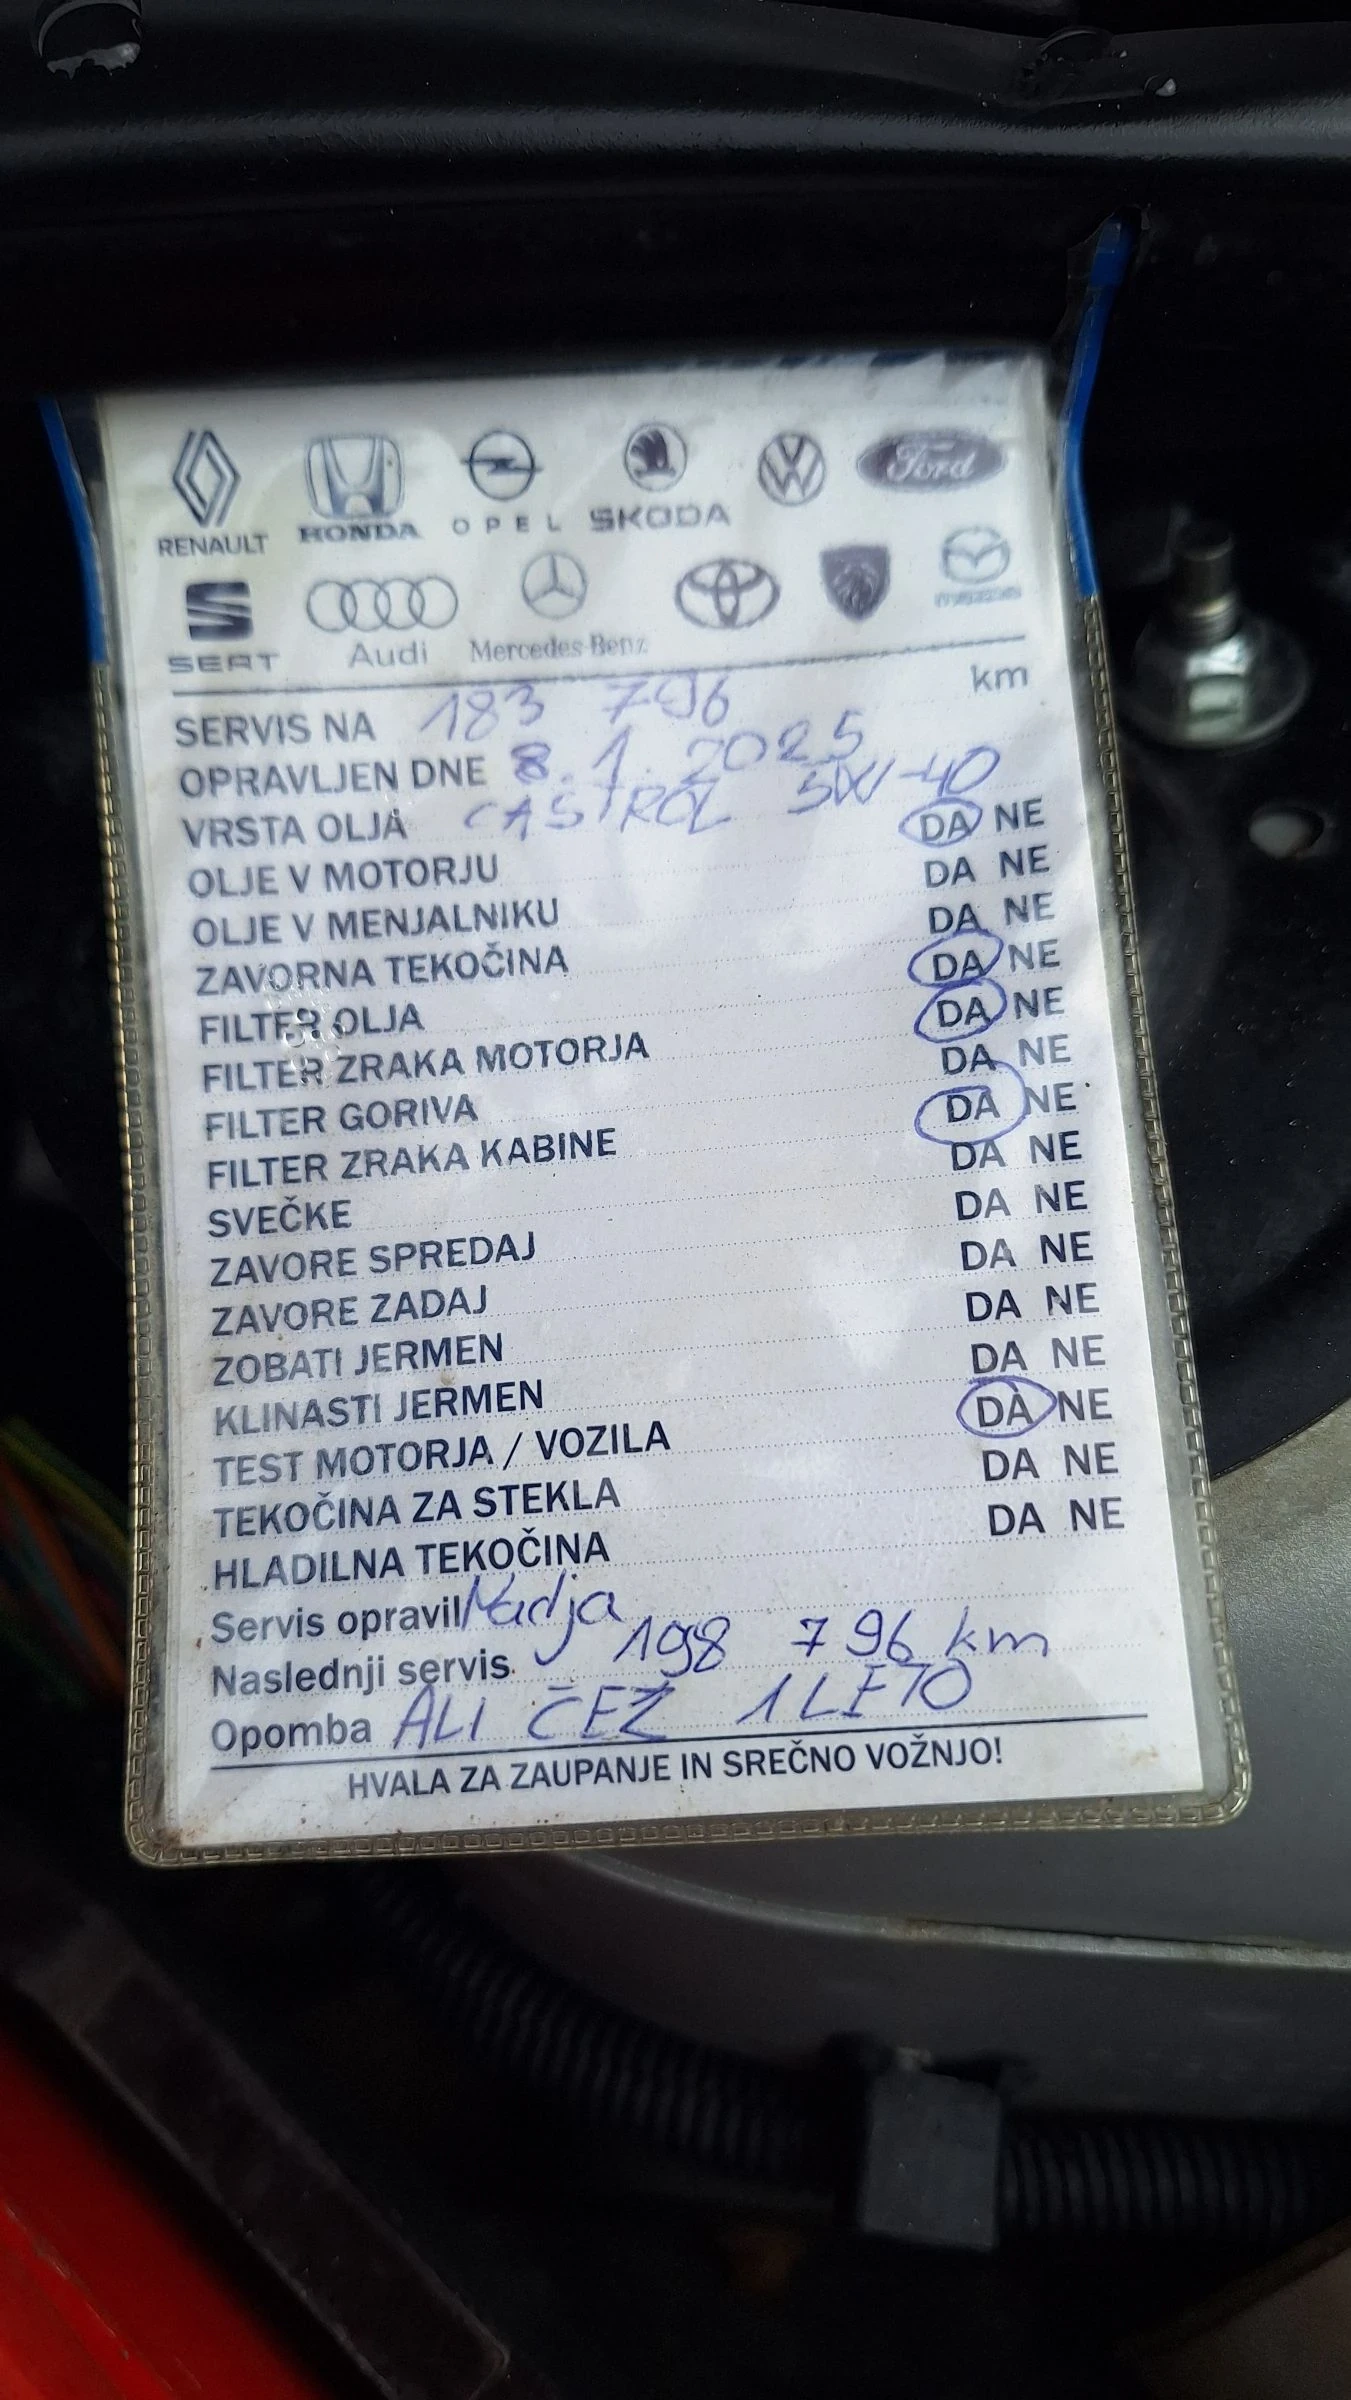 RENAULT HONDA OPEL SKODA Ford
SEAT Audi Mercedes-Benz mazda
km
SERVIS NA 183 796
OPRAVLJEN DNE 8.1.2025
VRSTA OLJA CASTROL 5W-40
OLJE V MOTORJU DA NE
OLJE V MENJALNIKU DA NE
ZAVORNA TEKOČINA DA NE
FILTER OLJA DA NE
FILTER ZRAKA MOTORJA DA NE
FILTER GORIVA DA NE
FILTER ZRAKA KABINE DA NE
SVEČKE DA NE
ZAVORE SPREDAJ DA NE
ZAVORE ZADAJ DA NE
ZOBATI JERMEN DA NE
KLINASTI JERMEN DA NE
TEST MOTORJA / VOZILA DA NE
TEKOČINA ZA STEKLA DA NE
HLADILNA TEKOČINA DA NE
Servis opravil Madja
Naslednji servis 198 796 km
Opomba ALI ČEZ 1 LETO
HVALA ZA ZAUPANJE IN SREČNO VOŽNJO!